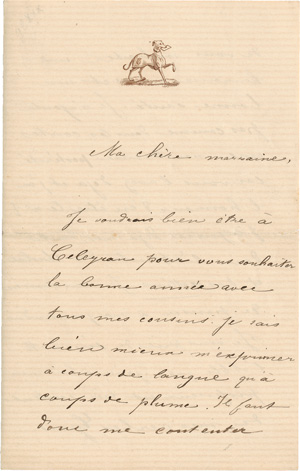 Ma chère marraine,
Je voudrais bien être à
Celeyran pour vous souhaiter
la bonne année avec
tous mes cousins. Je sais
bien mieux m'exprimer
à coups de langue qu'à
coups de plume. Il faut
donc me contenter